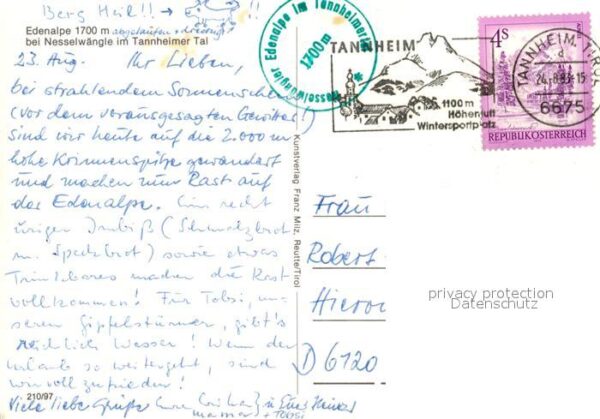 Berg Heil!! →
Edenalpe 1700 m abgelaufen + dreckig
bei Nesselwängle im Tannheimer Tal
23. Aug. Ihr Lieben,
bei strahlendem Sonnenschein
(vor dem vorausgesagten Gewitter)
sind wir heute auf die 2.000 m
hohe Krinnenspitze gewandert
und machen nun Rast auf
der Edenalpe. Ein recht
uriger Imbiß (Schmalzbrot
u. Speckbrot) sowie etwas
Trinkbares machen die Rast
vollkommen! Für Tobsi, un-
seren Gipfelstürmer, gibt's
reichlich Wasser! Wenn der
Urlaub so weitergeht, sind
wir voll zufrieden!
210/97
Viele liebe Grüße Eure
+ Tobsi
Kunstverlag Franz Milz, Reutte/Tirol
Nesselwängler Edenalpe im Tannheimertal
1700m
TANNHEIM
1100m
Höhenluft
Wintersportplatz
TANNHEIM, TIROL
d
24.-8.83-15
6675
4S
REPUBLIK ÖSTERREICH
Frau
Robert
Hieron
D 6120
privacy protection
Datenschutz